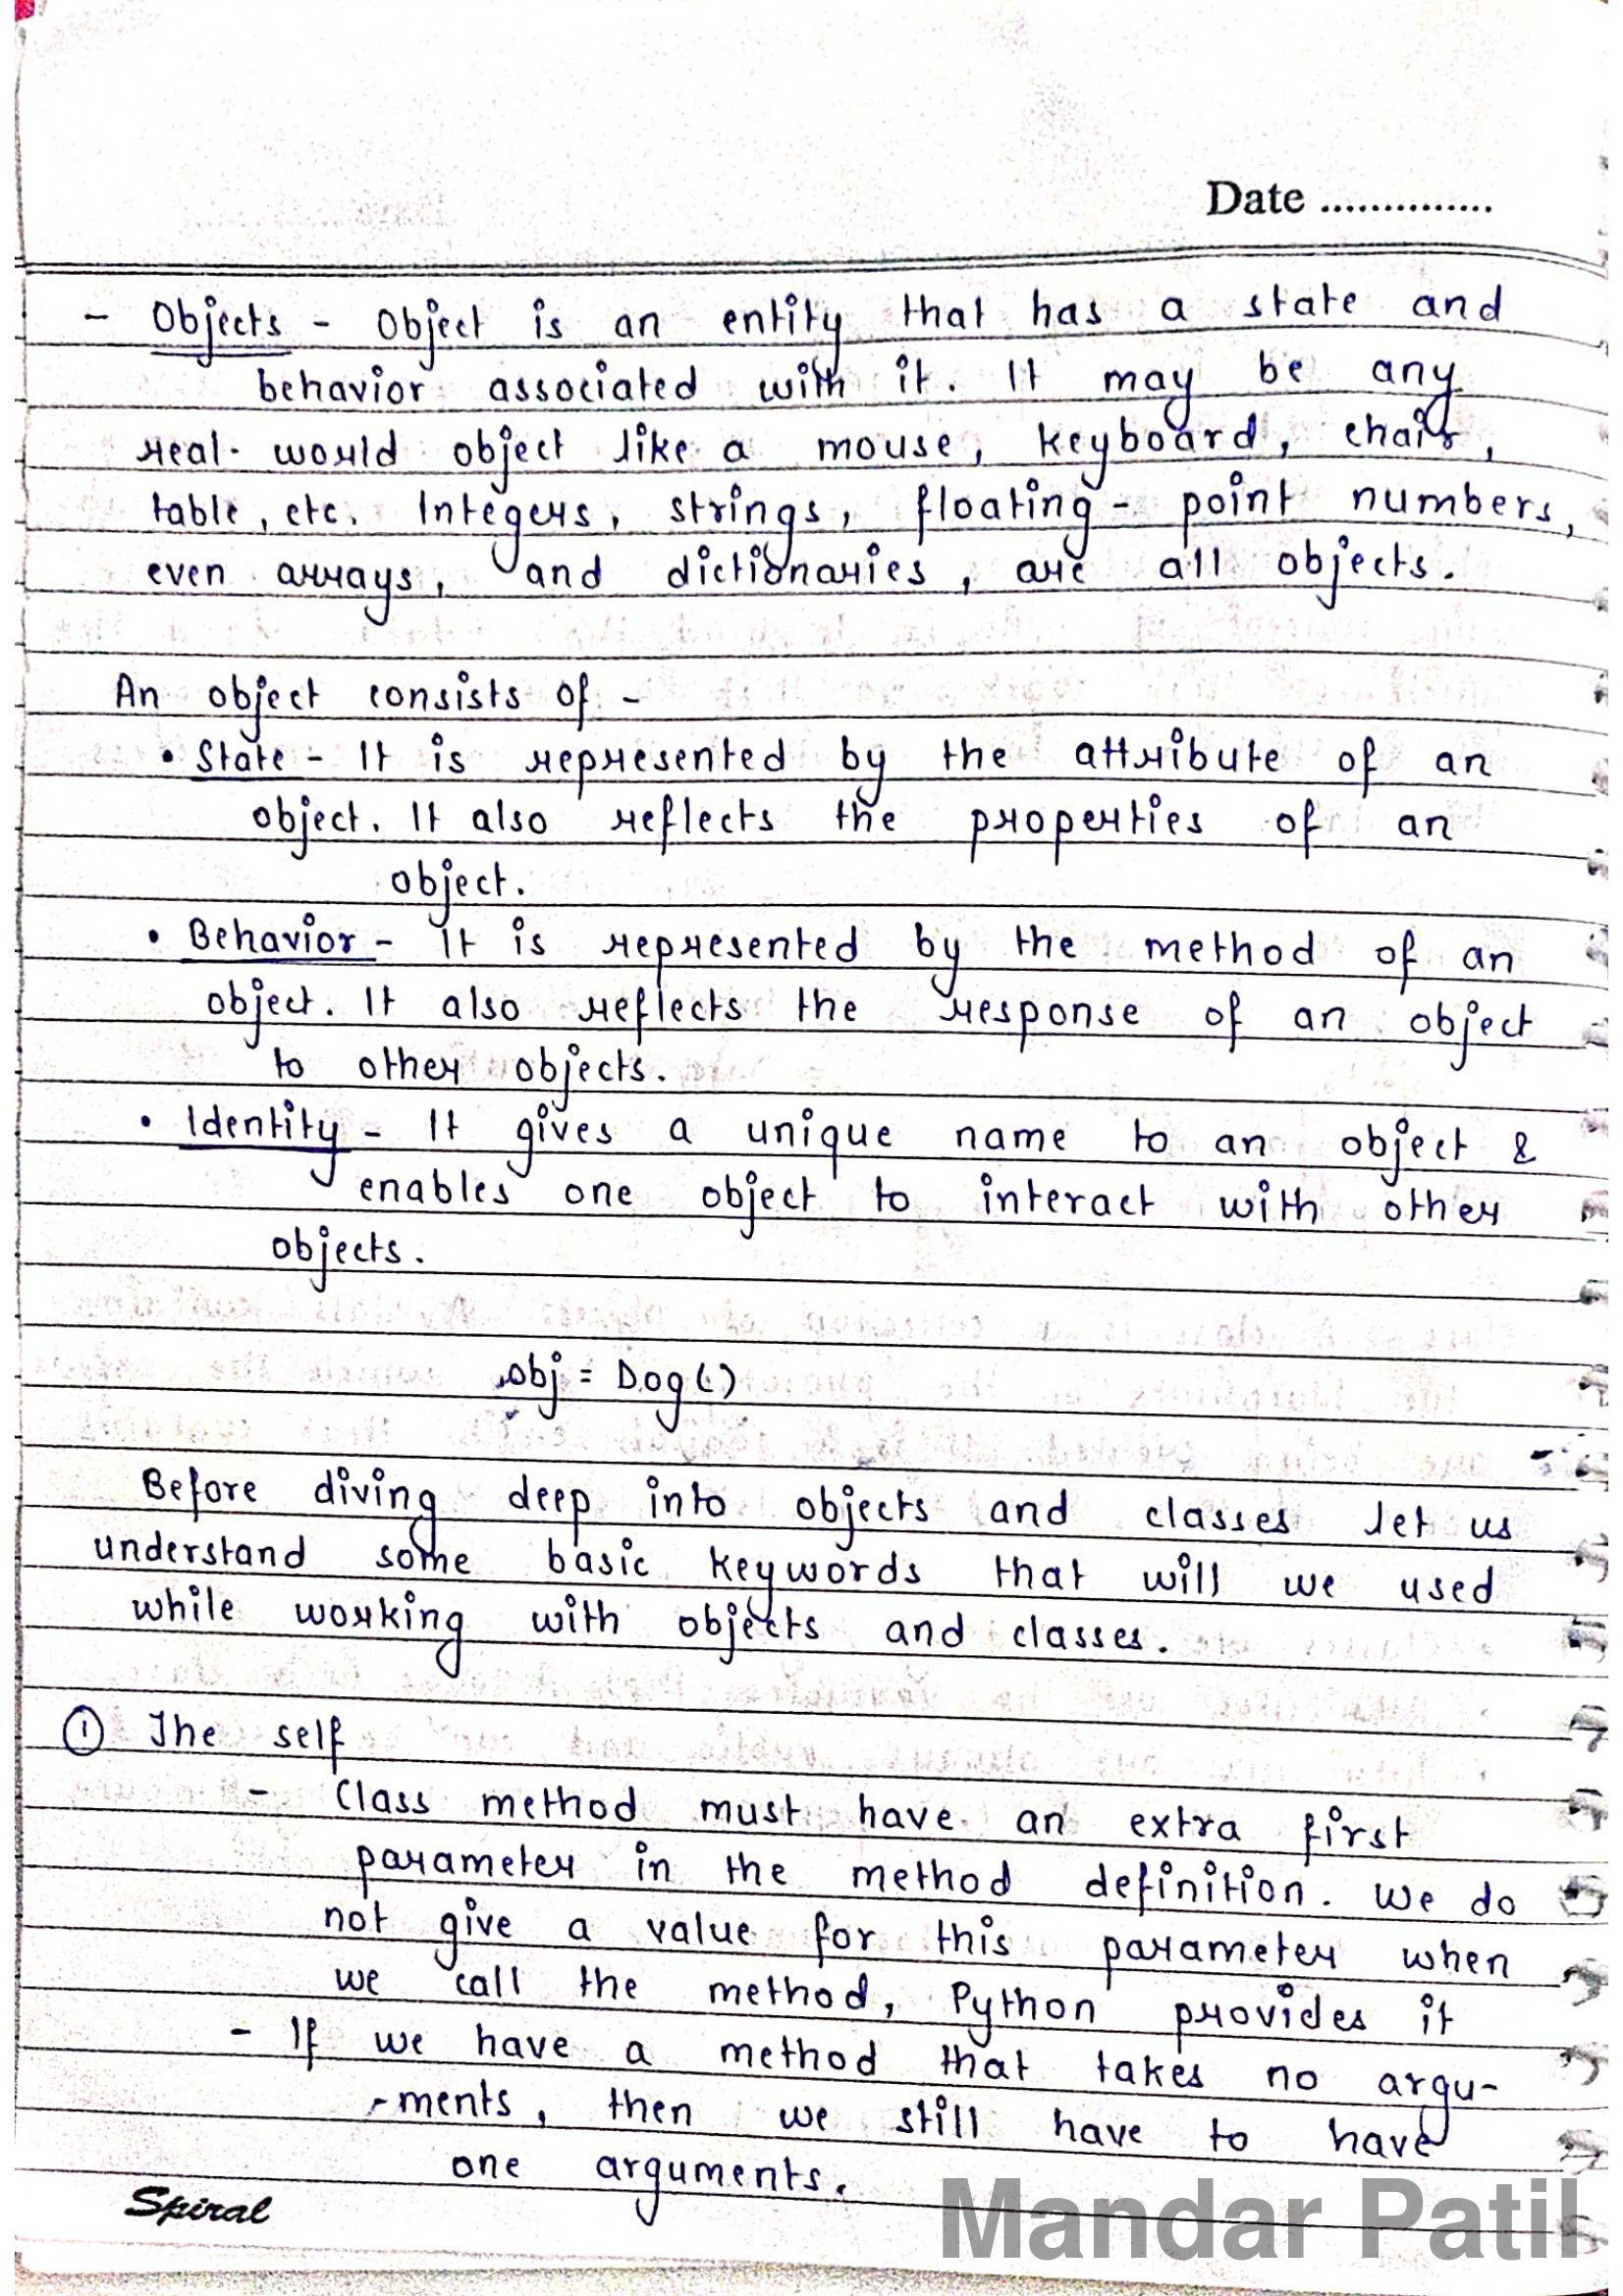 Date ..............
- Objects - Object is an entity that has a state and
behavior associated with it. It may be any
real-would object like a mouse, keyboard, chair,
table, etc. Integers, strings, floating-point numbers,
even arrays, and dictionaries, are all objects.
An object consists of -
• State - It is represented by the attribute of an
object. It also reflects the properties of an
object.
• Behavior - It is represented by the method of an
object. It also reflects the response of an object
to other objects.
• Identity - It gives a unique name to an object &
enables one object to interact with other
objects.
obj = Dog()
Before diving deep into objects and classes let us
understand some basic keywords that will we used
while working with objects and classes.
① The self
- Class method must have an extra first
parameter in the method definition. We do
not give a value for this parameter when
we call the method, Python provides it
- If we have a method that takes no argu-
-ments, then we still have to have
one arguments.
Spiral
Mandar Patil